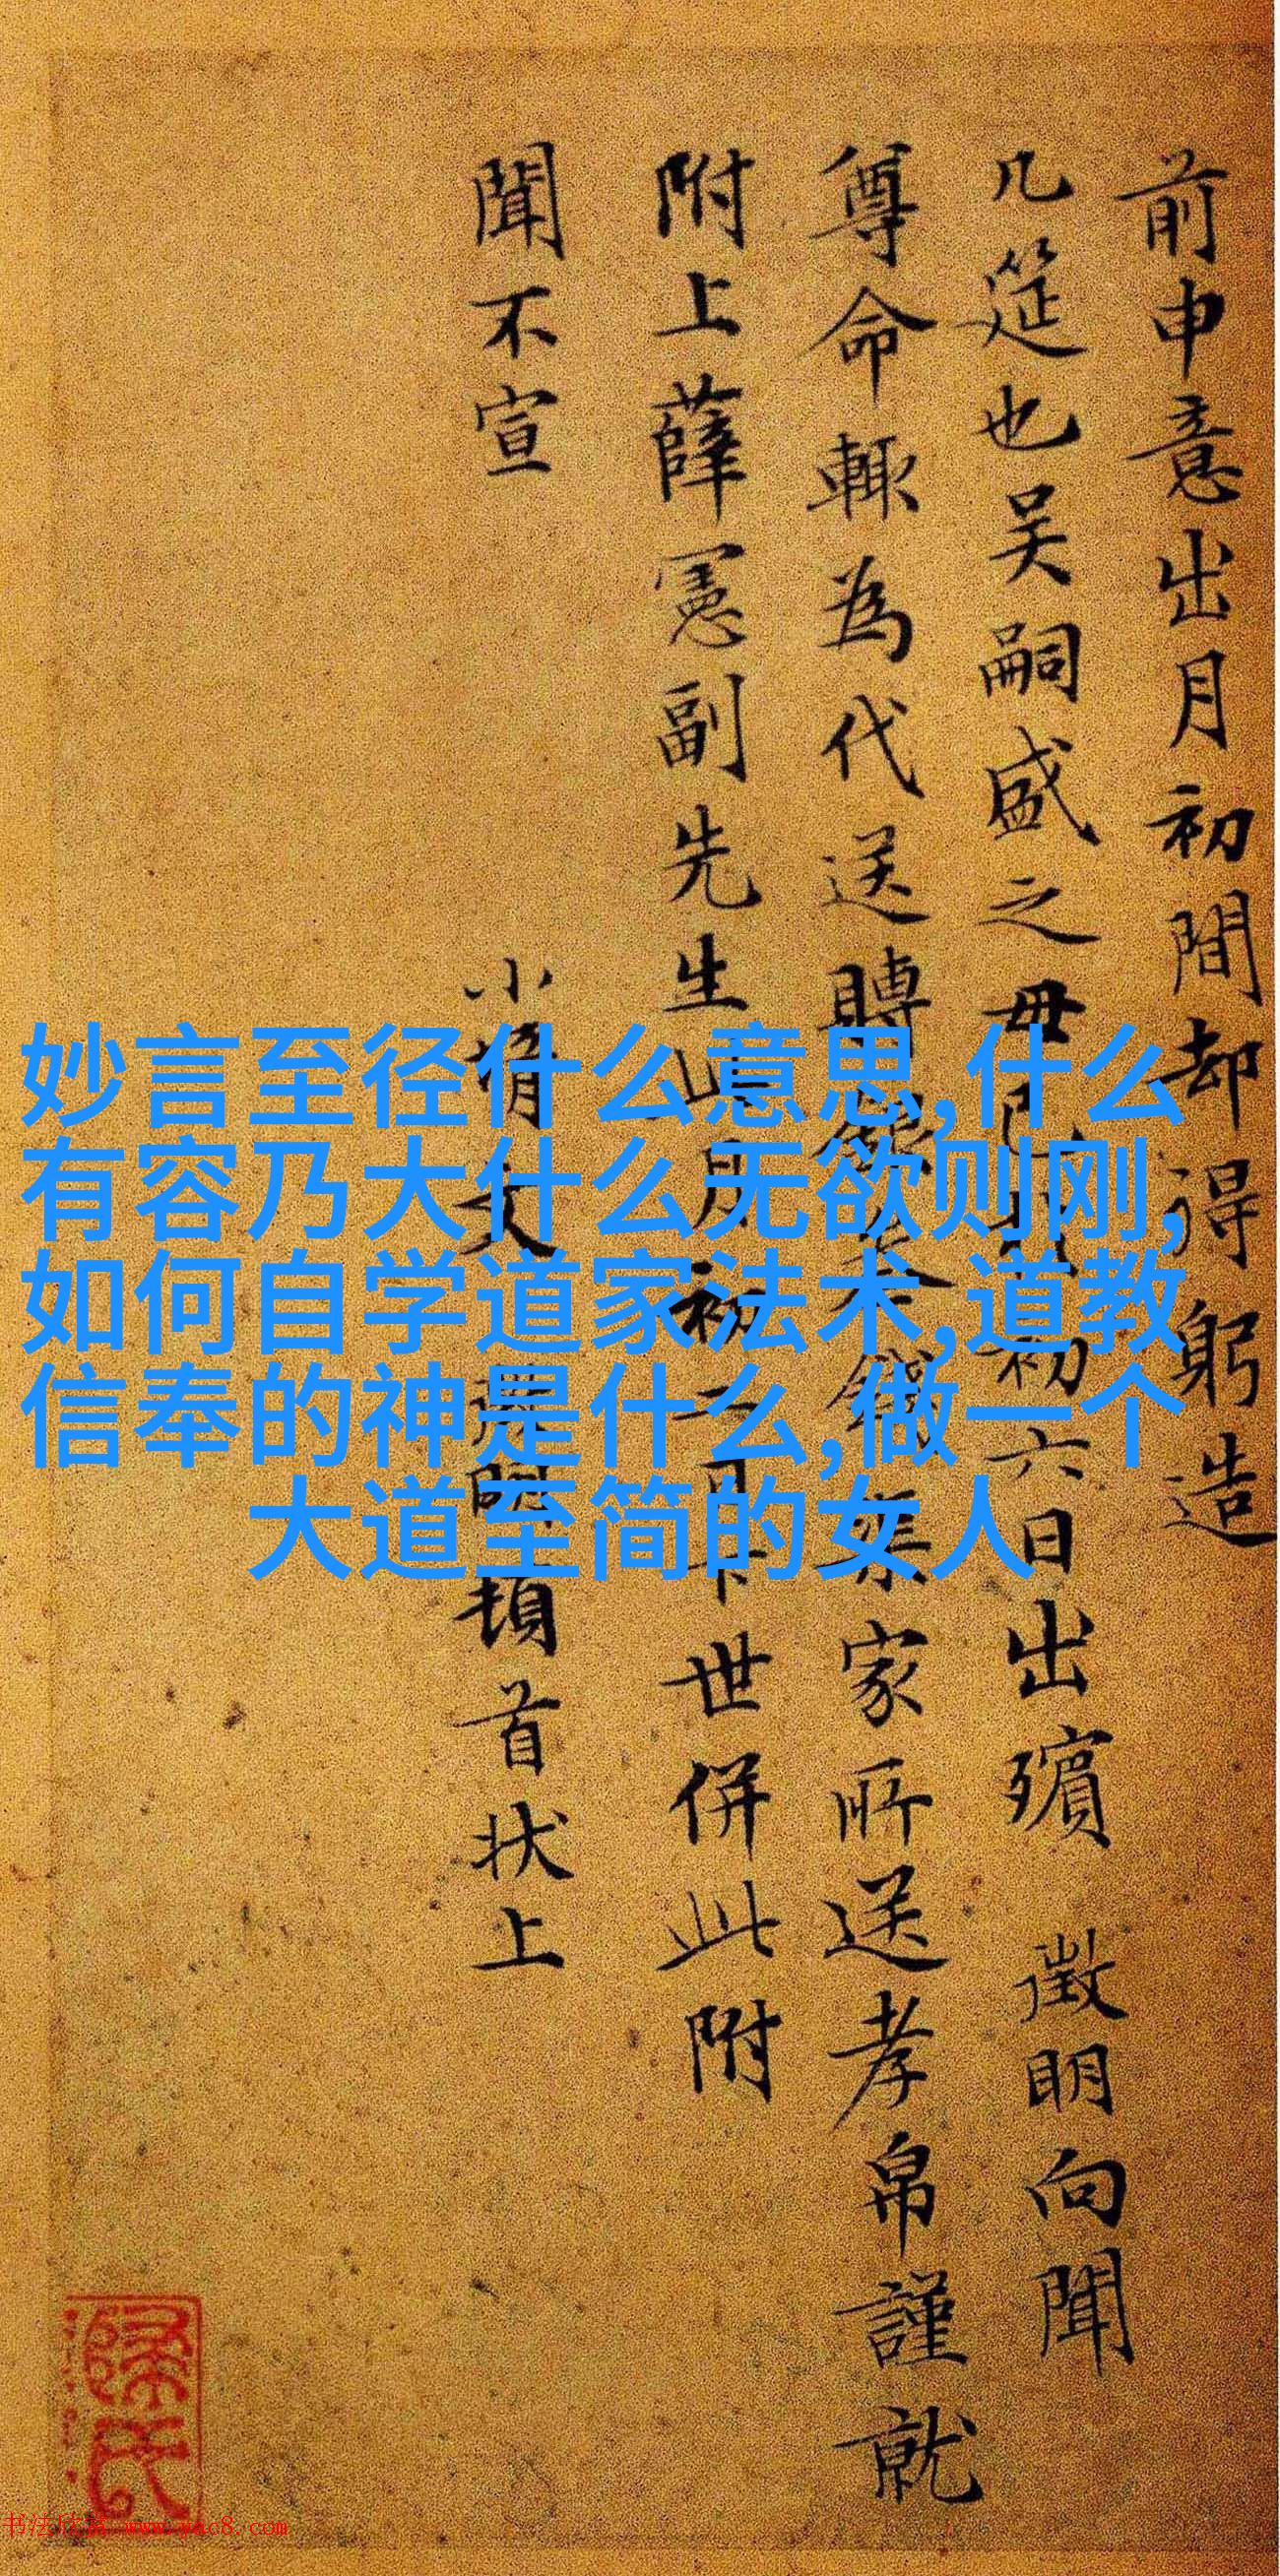 前申意出月初間却得躬造
几筵也吴嗣盛之毋已初六日出殯 徵明向聞
尊命輙為代送賻家所送孝帛謹就
附上薛憲副先生月初二日世併此附
聞不宣
小文明頓首狀上
妙言至径什么意思,什么
有容乃大什么无欲则刚,
如何自学道家法术,道教
信奉的神是什么,做一个
大道至简的女人
书法欣赏 www.yac8.com